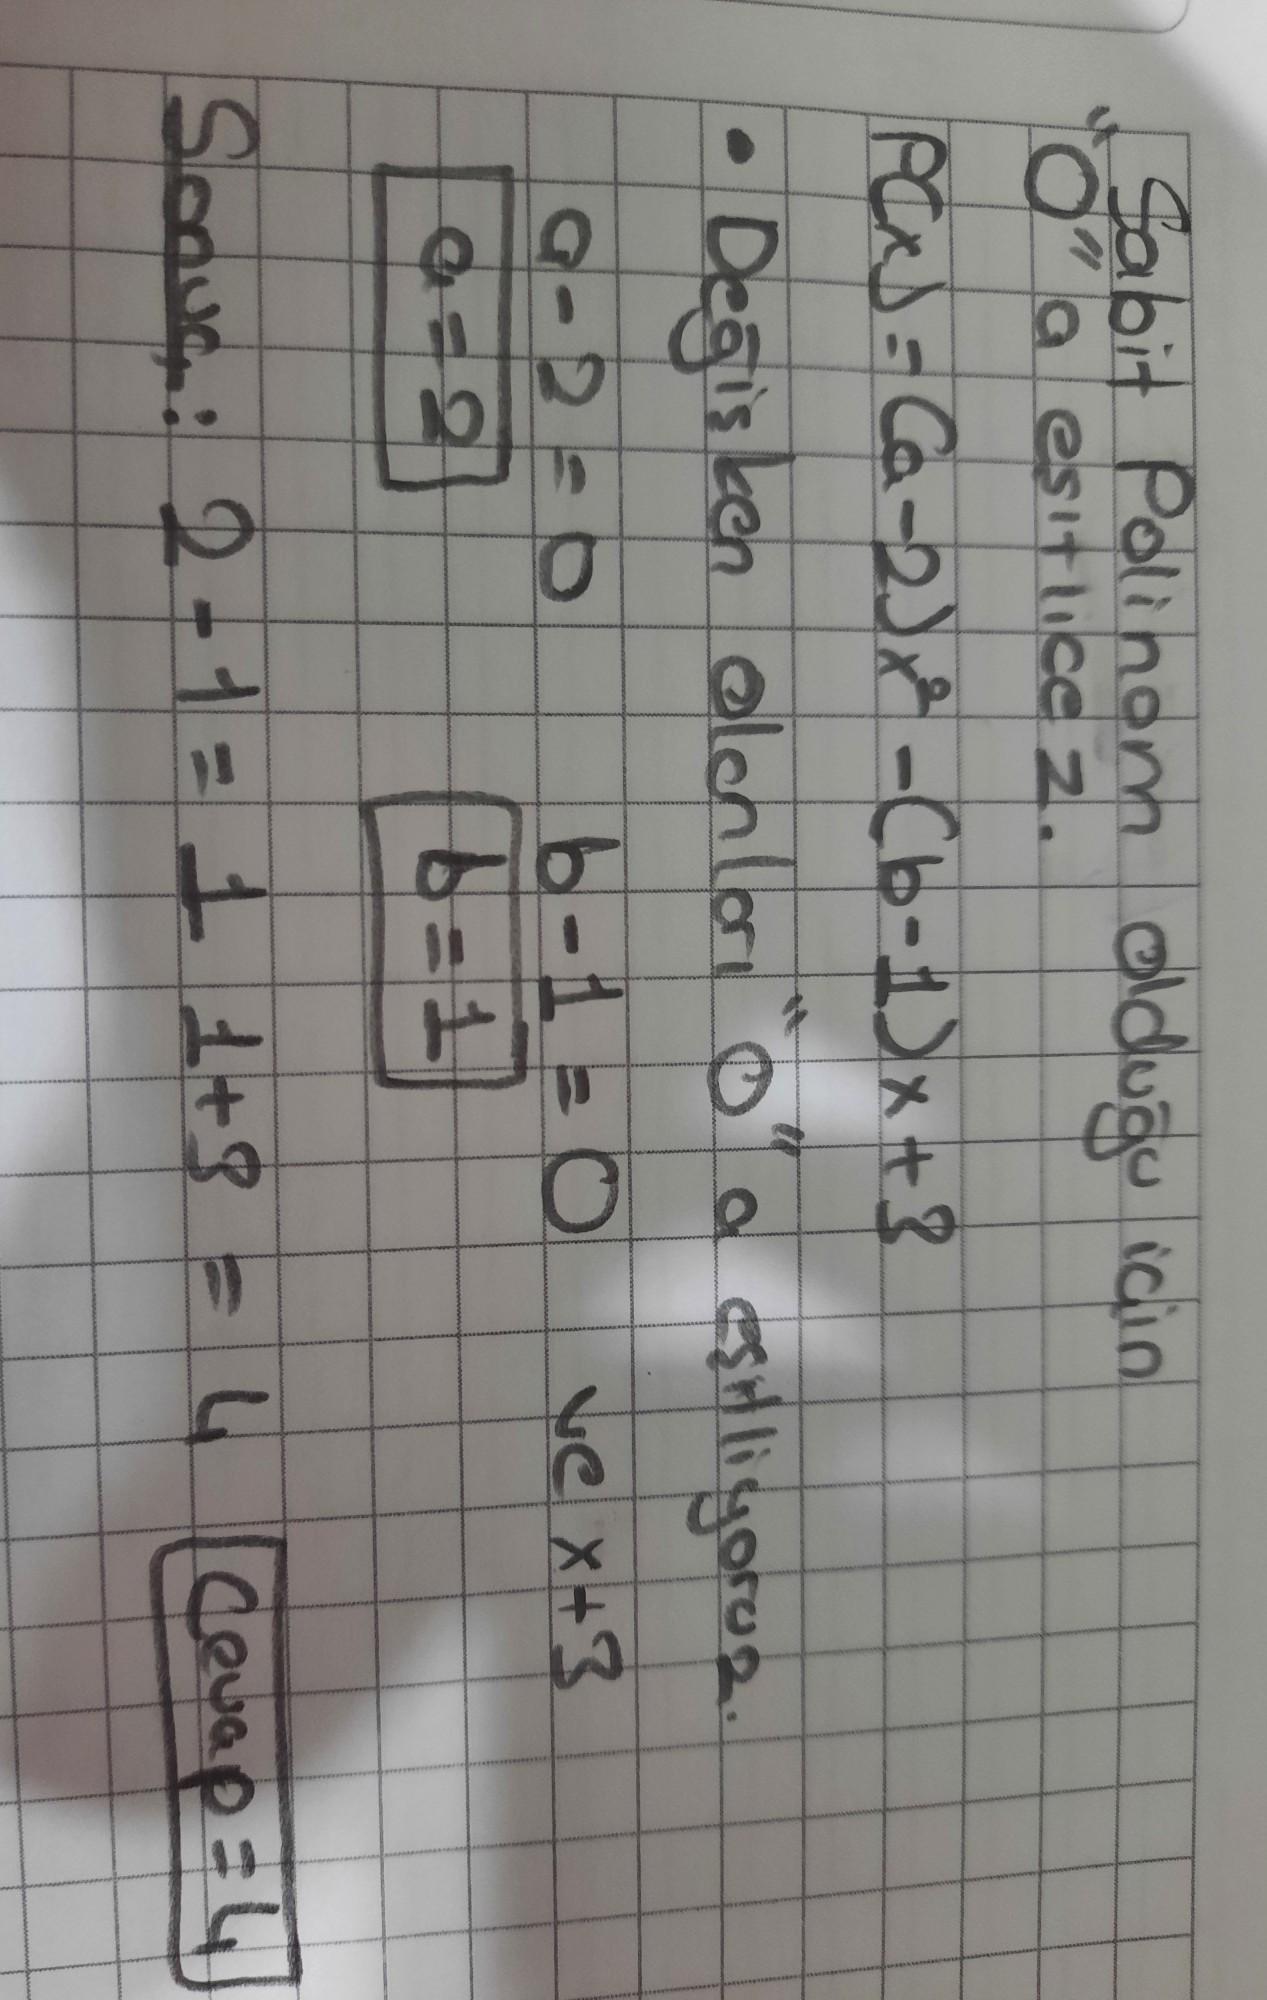 Sabit Polinom olduğu için
"0" a esitlicez.
P(x) = (a-2)x² - (b-1)x + 3
• Değisken olanları "0" a esitliyoruz.
a-2=0 b-1=0 ve x+3
a=2 b=1
Sonuç: 2-1=1 1+3=4 Cevap=4